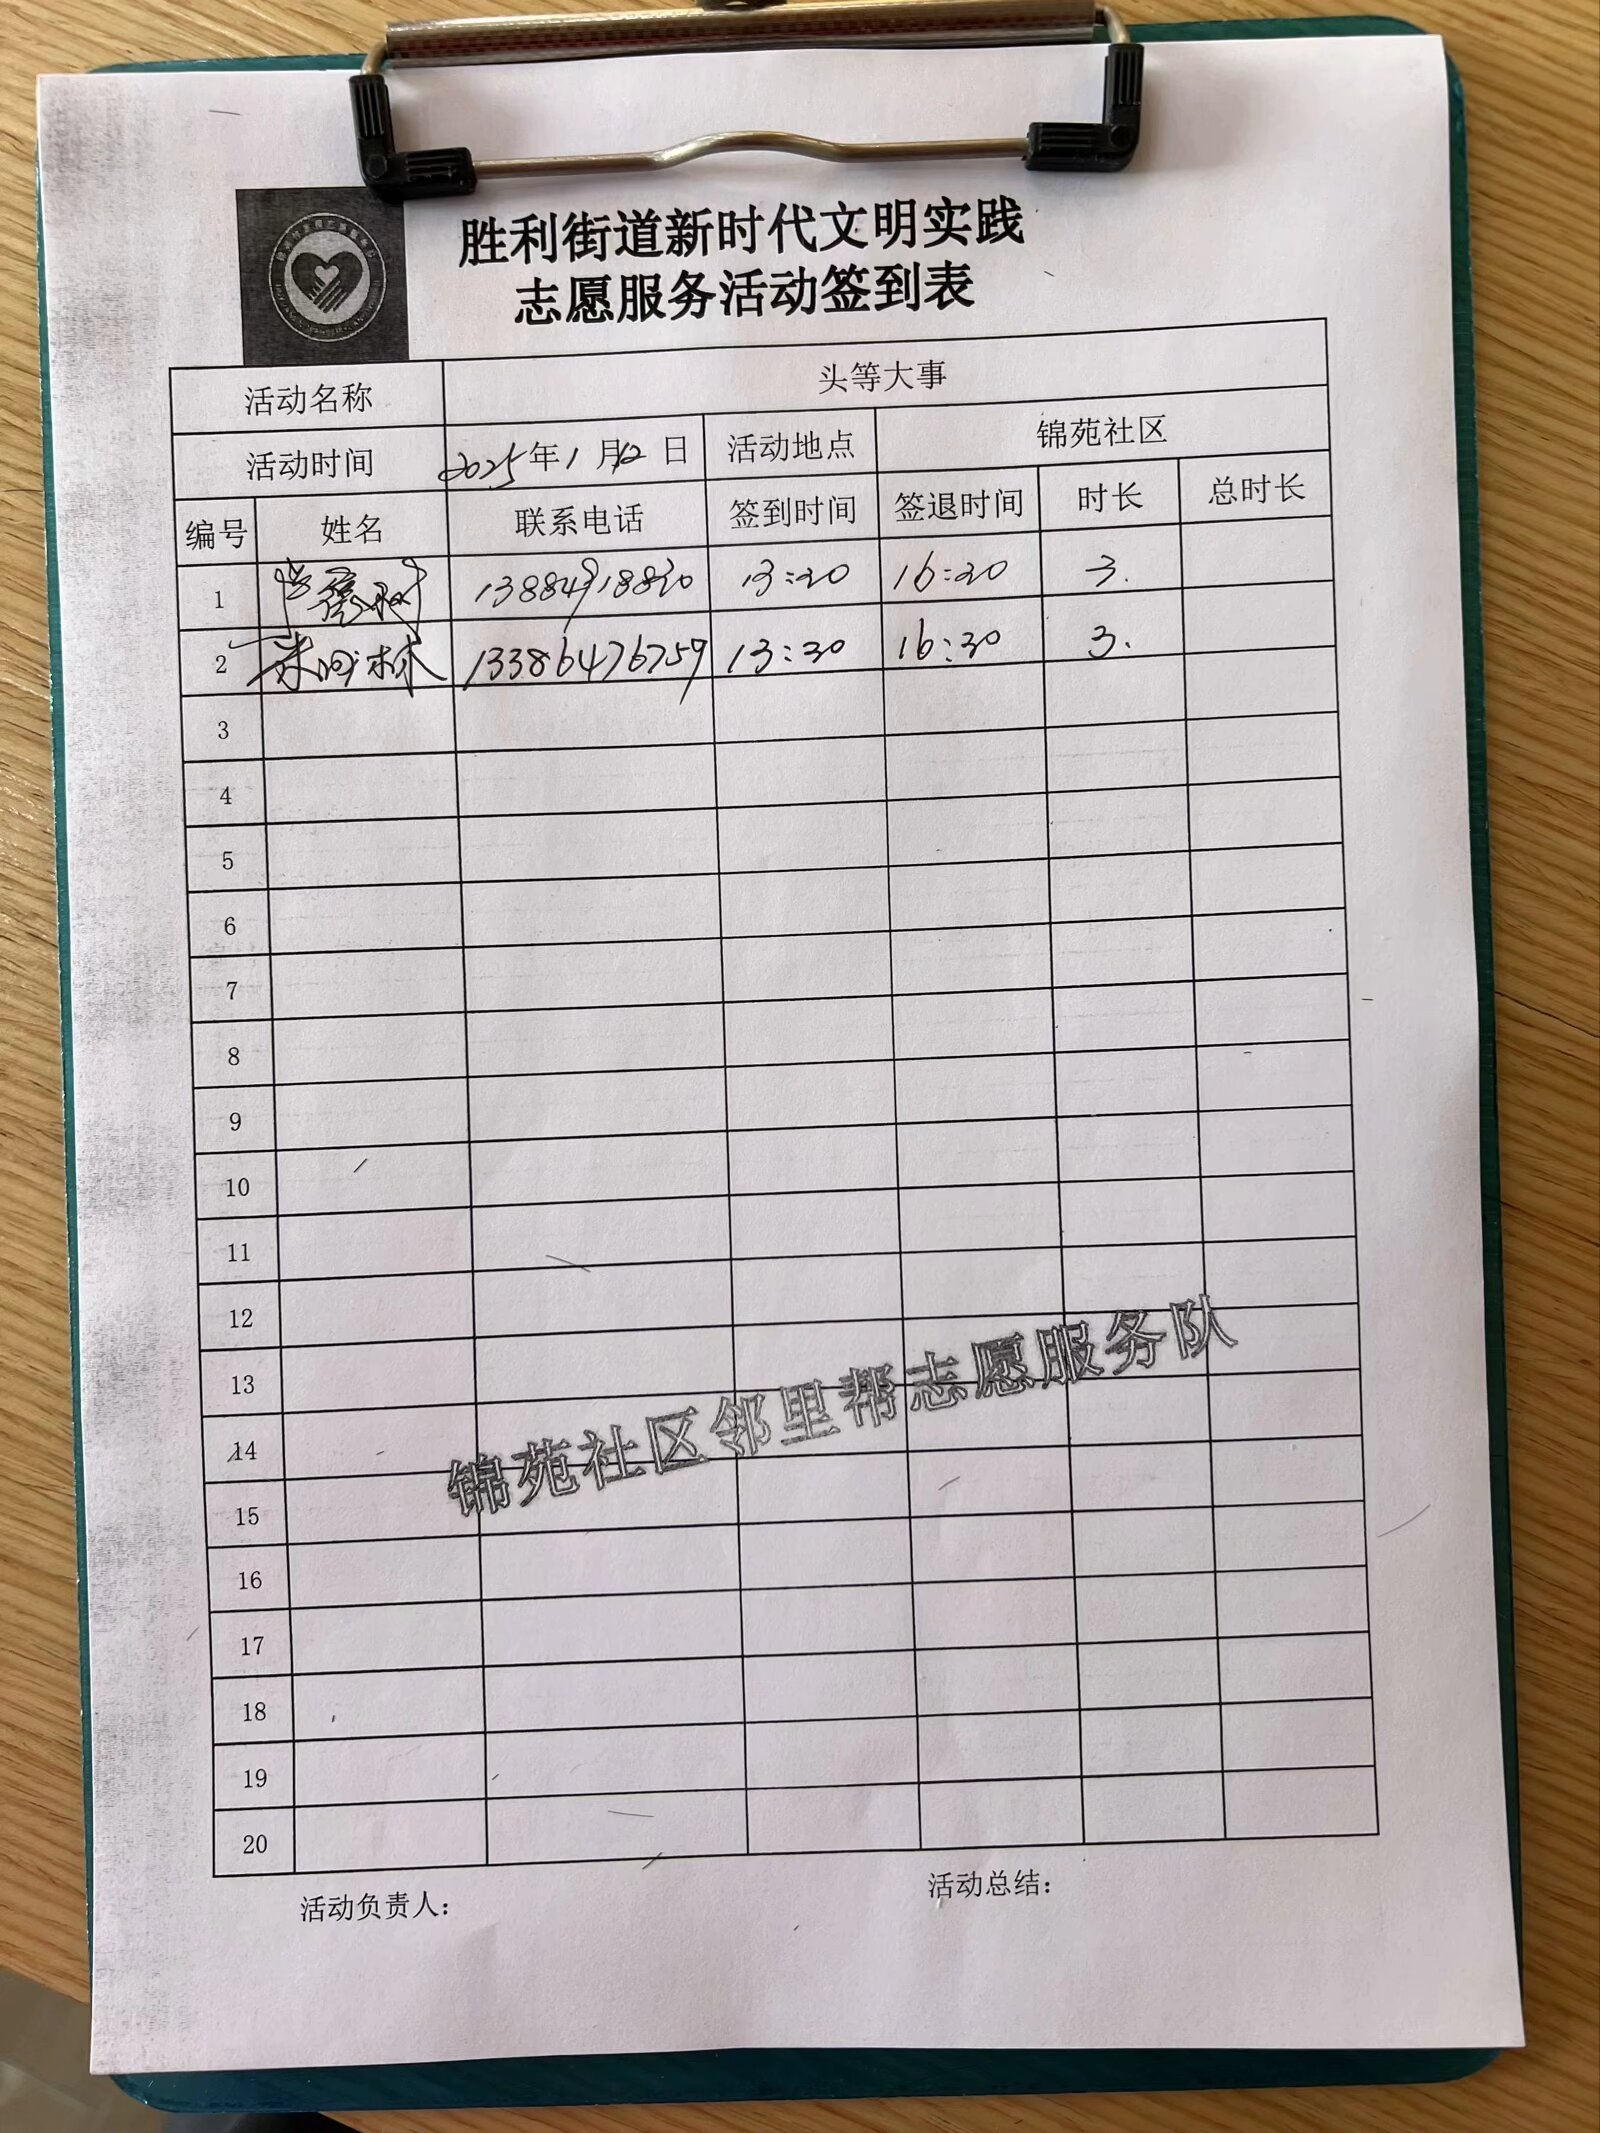 胜利街道新时代文明实践
志愿服务活动签到表
活动名称 头等大事
活动时间 2025年1月12日 活动地点 锦苑社区
编号 姓名 联系电话 签到时间 签退时间 时长 总时长
1 13884918820 13:30 16:30 3.
2 13386476759 13:30 16:30 3.
3
4
5
6
7
8
9
10
11
12
13
14
15
16
17
18
19
20
锦苑社区邻里帮志愿服务队
活动负责人: 活动总结: